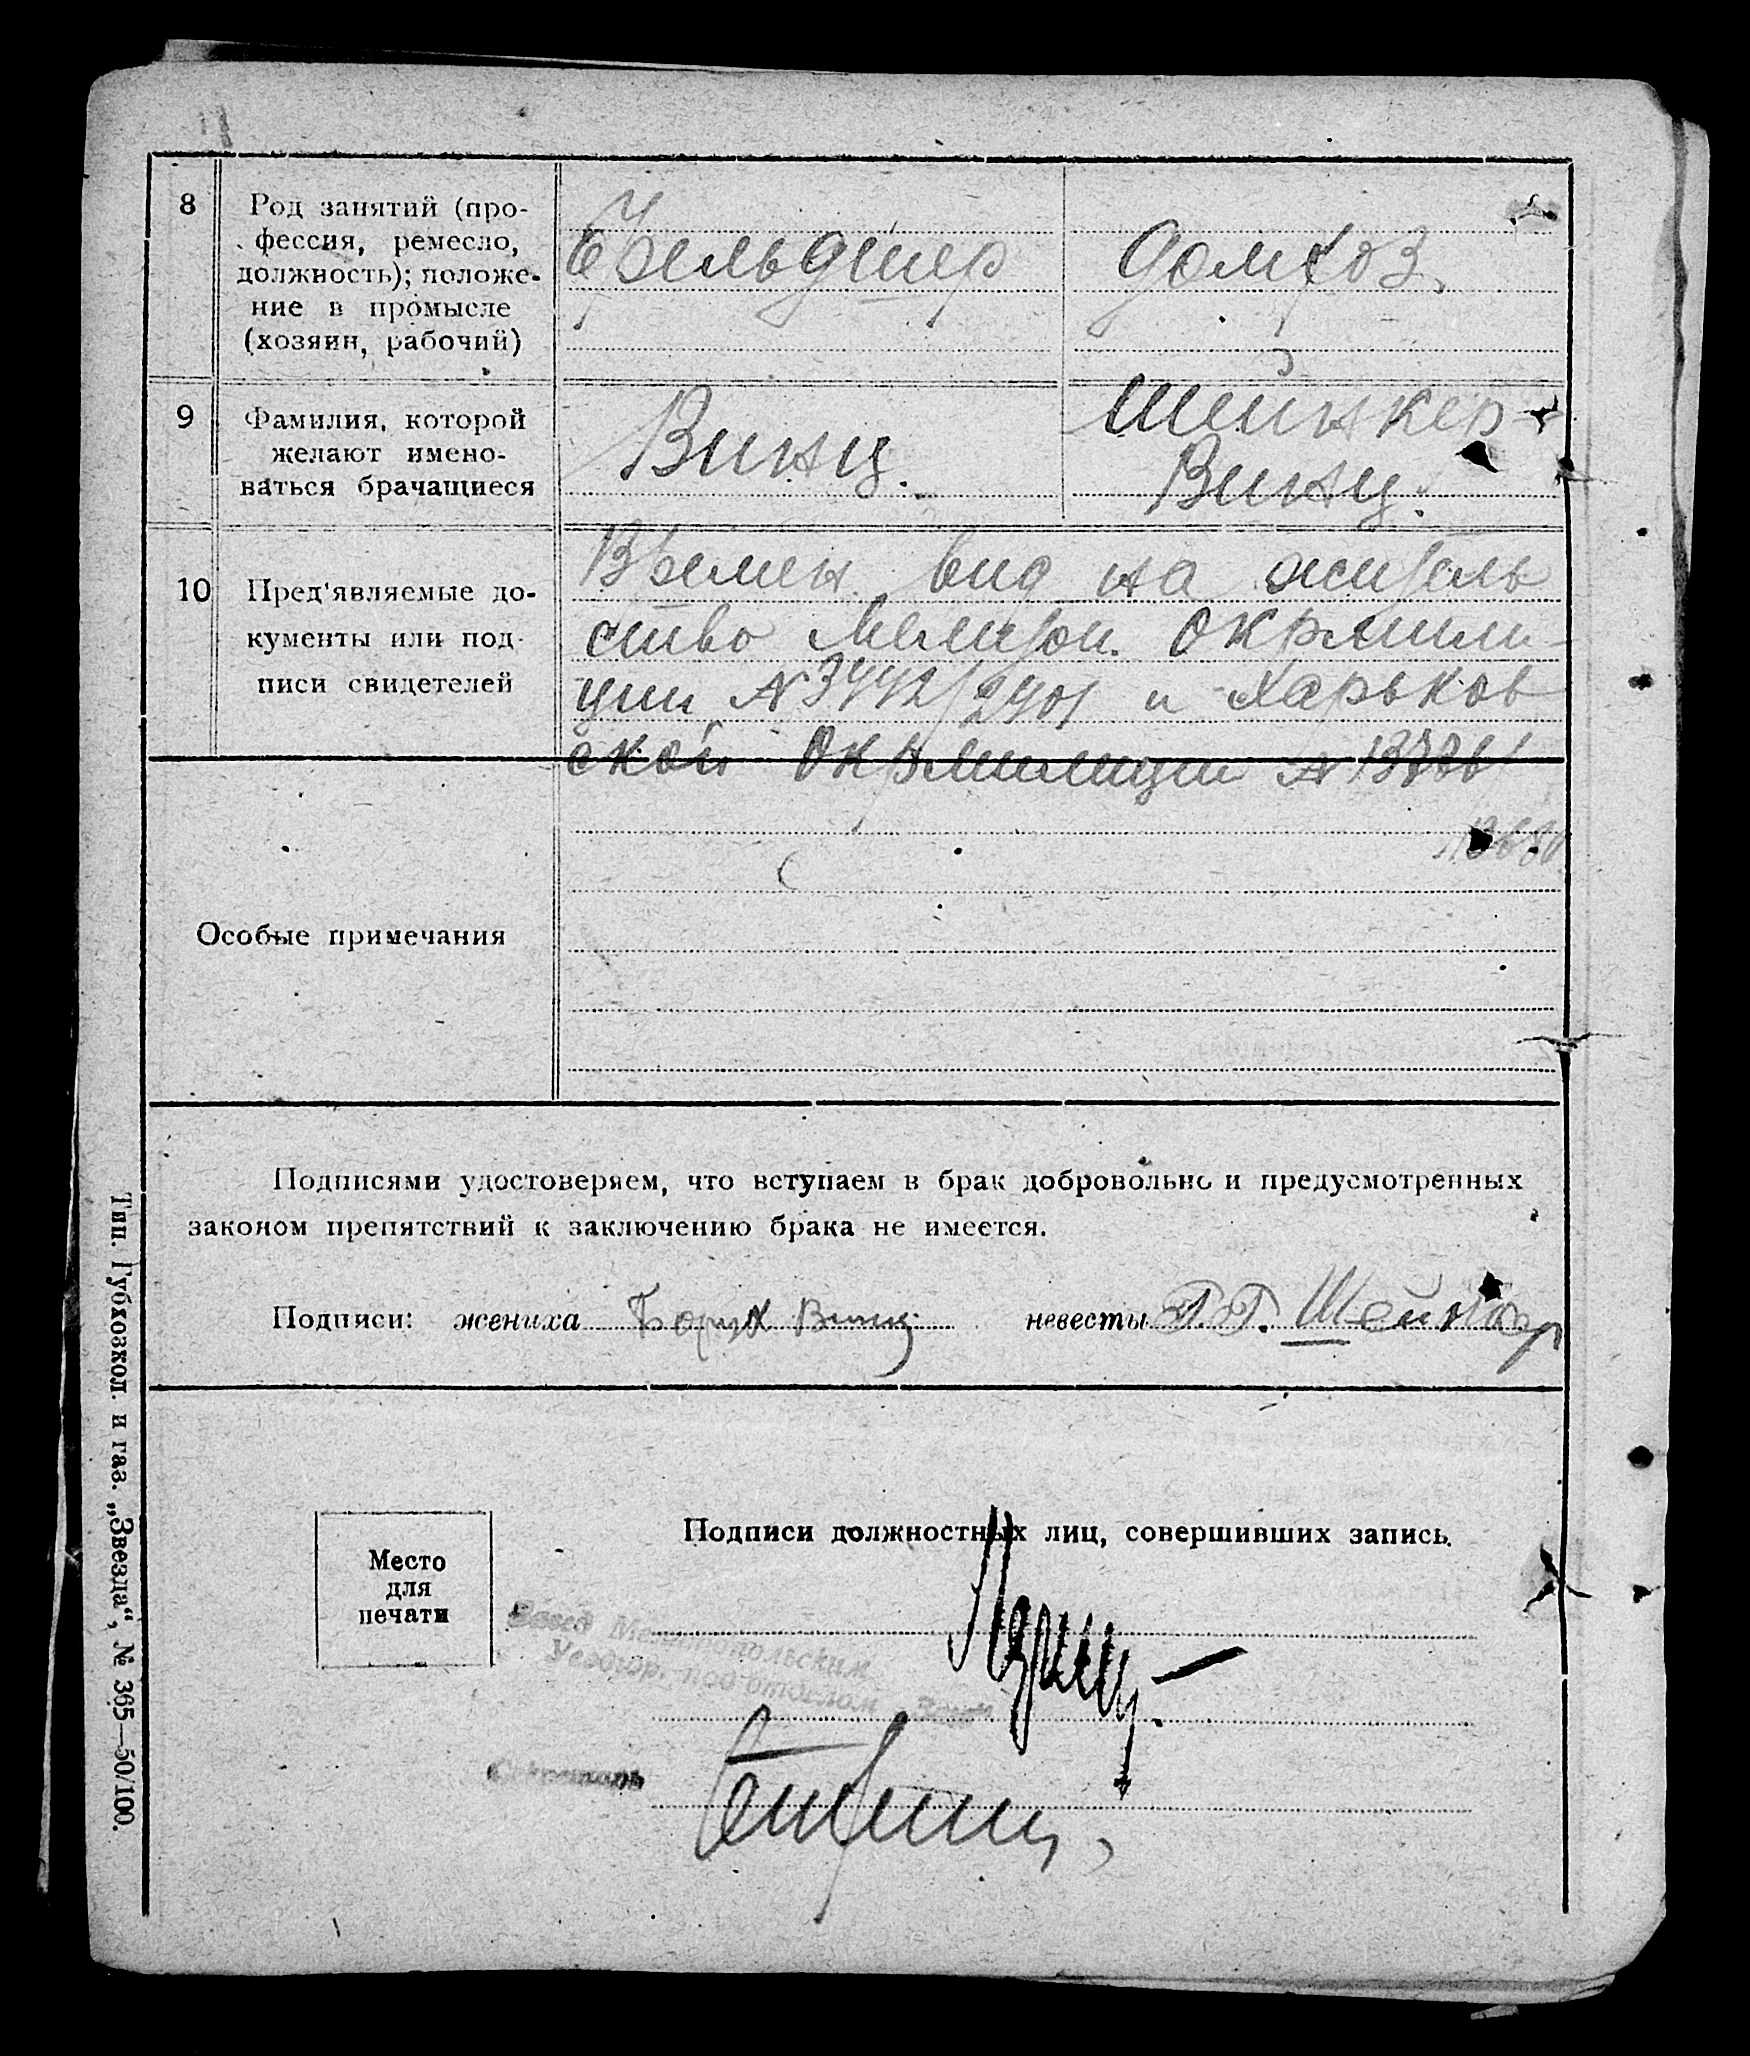 8
Род занятий (про-
фессия, ремесло,
должность); положе-
ние в промысле
(хозяин, рабочий)
Фельдшер
домхоз.
9
Фамилия, которой
желают имено-
ваться брачащиеся
Винц.
Шейнкер-
Винц.
10
Пред'являемые до-
кументы или под-
писи свидетелей
Времен. вид на житель
ство Мелитоп. Окрмили-
ции № 3442/2401 и Харьков
ской Окрмилиции №
Особые примечания
Подписями удостоверяем, что вступаем в брак добровольно и предусмотренных
законом препятствий к заключению брака не имеется.
Подписи: жениха Борух Винц невесты Г.Г. Шейнкер
Подписи должностных лиц, совершивших запись.
Место
для
печати
Завед Мелитопольским
Секретарь
Тип. Губхозкол. и газ. „Звезда“, № 365—50/100.